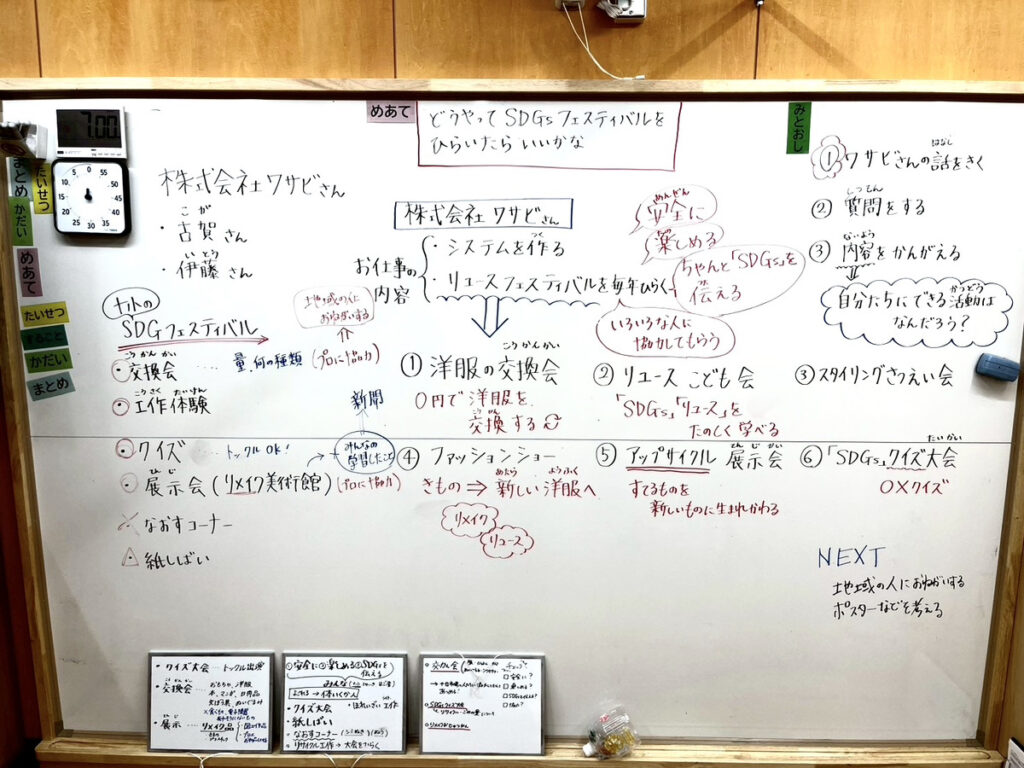 めあて
どうやってSDGsフェスティバルを
ひらいたら いいかな
みとおし
はなし
① ワサビさんの話をきく
しつもん
② 質問をする
ないよう
③ 内容をかんがえる
かつどう
自分たちにできる活動は
なんだろう？
7:00
たいせつ
まとめ
かだい
めあて
たいせつ
すること
かだい
まとめ
株式会社ワサビさん
こが
・古賀さん
いとう
・伊藤さん
株式会社 ワサビさん
お仕事の
内容
つく
・システムを作る
・リユースフェスティバルを毎年ひらく
安全に
楽しめる
ちゃんと「SDGs」を
伝える
いろいろな人に
協力してもらう
SDGフェスティバル
地域の人に
おねがいする
こうかんかい
・交換会 …… 量、何の種類 (プロに協力)
こうさく たいけん
・工作体験
新聞
みんなの
学習したこと
・クイズ …… トックルOK!
てんじ
・展示会(リメイク美術館) (プロに協力)
× なおすコーナー
△ 紙しばい
こうかんかい
① 洋服の交換会
0円で洋服を
こうかん
交換する
② リユース こども会
「SDGs」「リユース」を
たのしく学べる
③ スタイリングさつえい会
④ ファッションショー
ようふく
きもの ⇒ 新しい洋服へ
リメイク
リユース
てんじかい
⑤ アップサイクル 展示会
すてるものを
新しいものに生まれかわる
たいかい
⑥「SDGs」クイズ大会
○×クイズ
NEXT
地域の人におねがいする
ポスターなどを考える
・クイズ大会 …… トックル出演
・交換会 …… おもちゃ、洋服
本、マンガ、日用品
・展示 …… リメイク品
①安全に②楽しめる③SDGsを
伝える
・クイズ大会
・紙しばい
・なおすコーナー
・リサイクル工作→大会をひらく
・交かん会
チェック
□安全に?
□楽しめる?